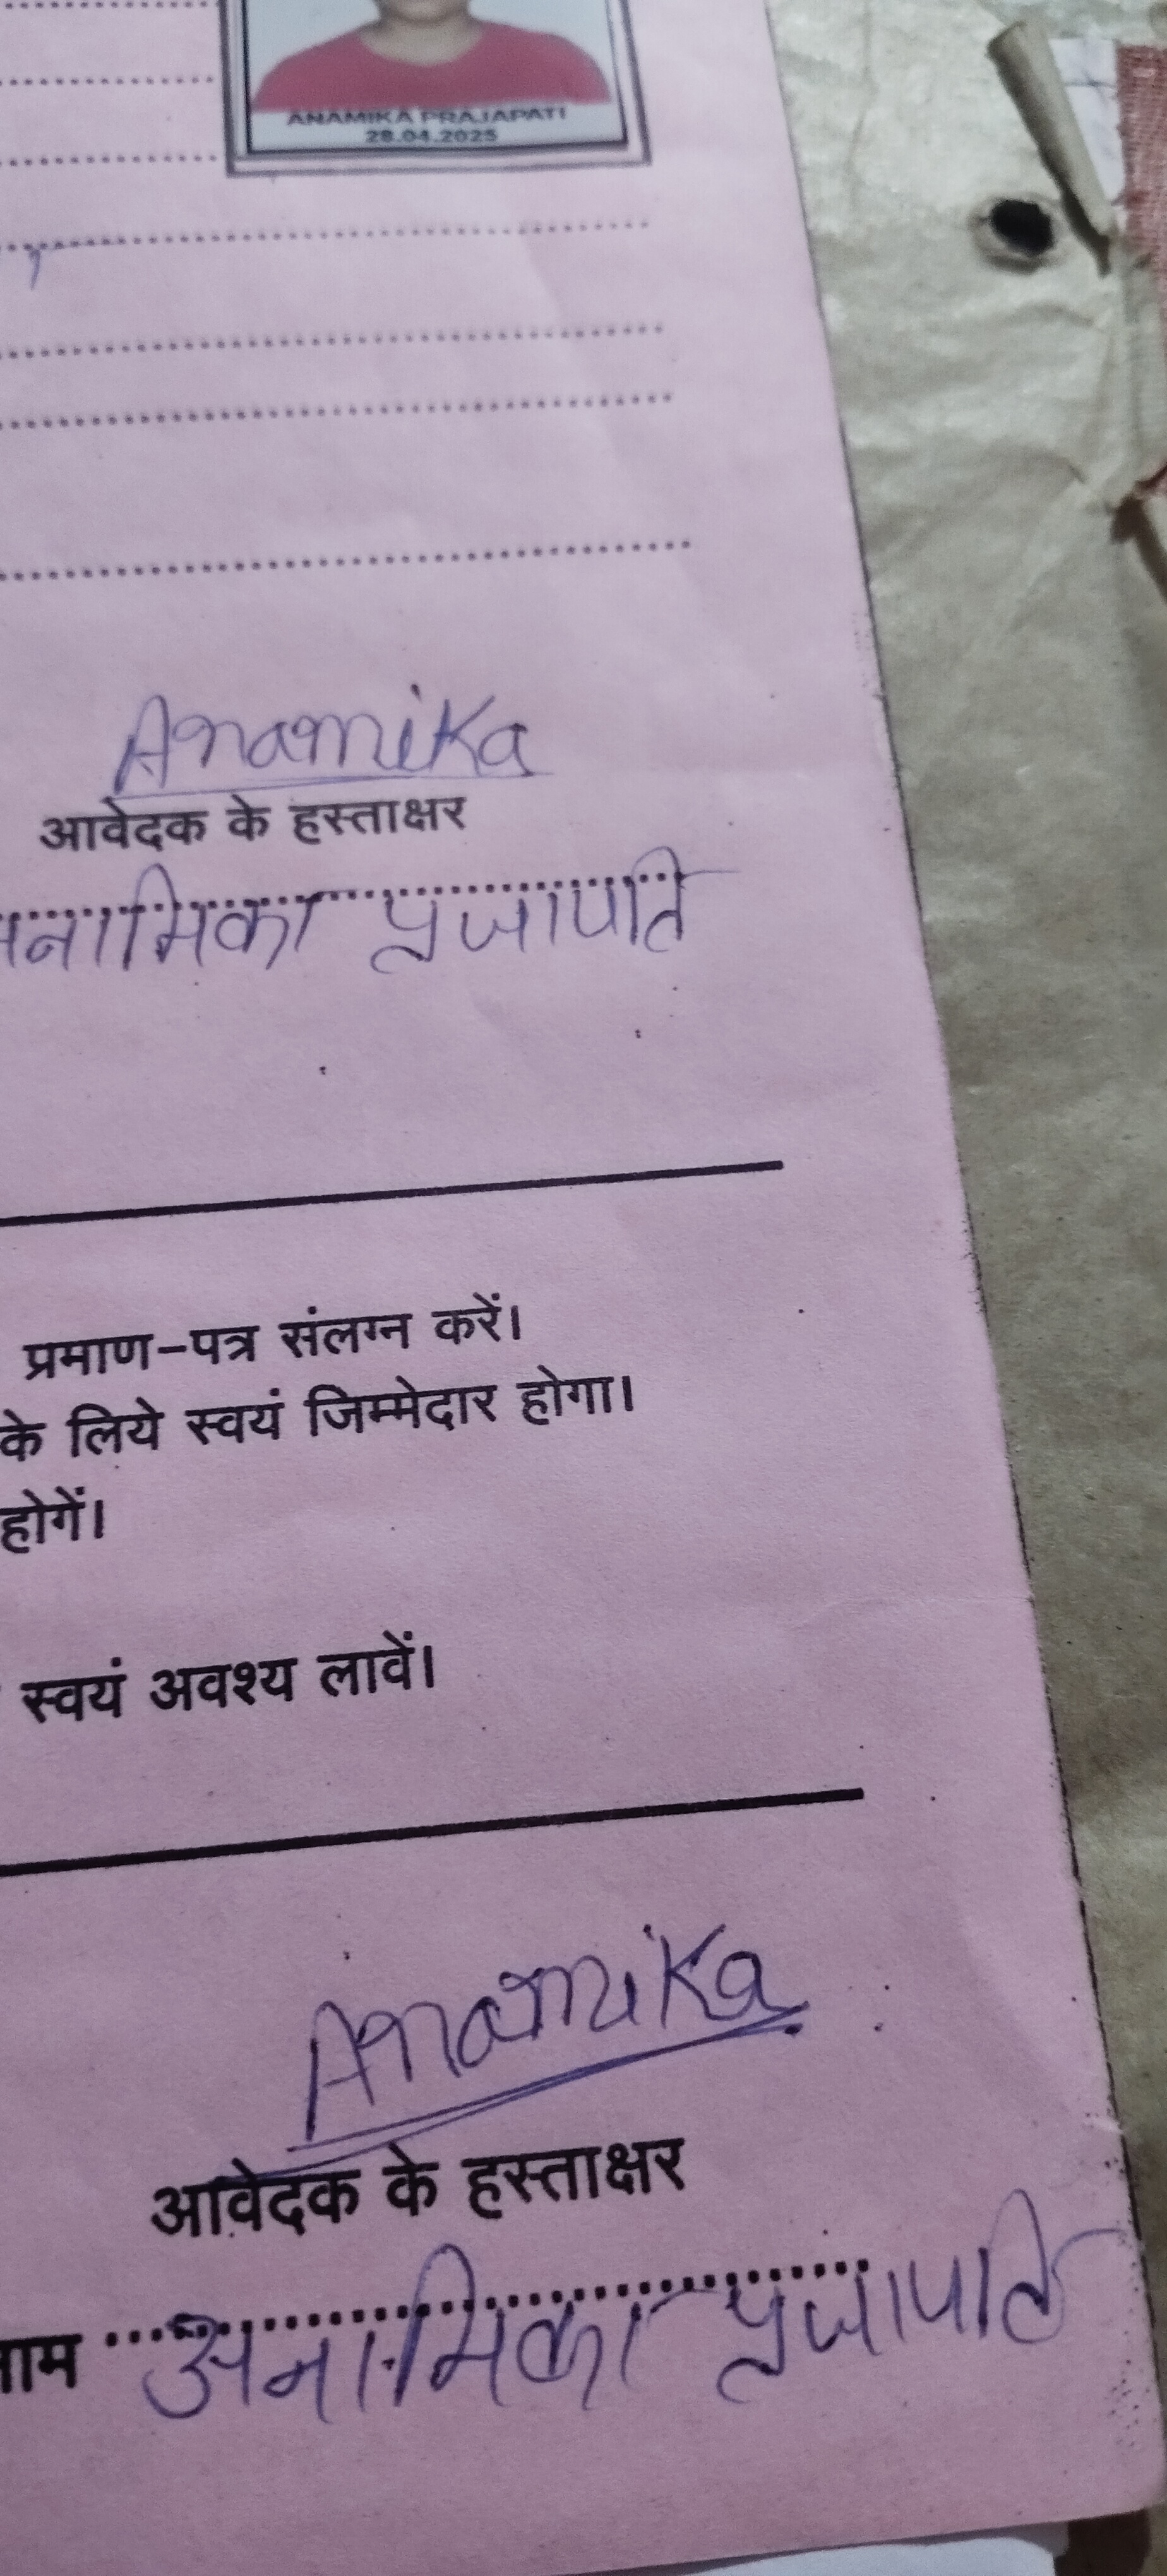 ANAMIKA PRAJAPATI
28.04.2025
Anamika
आवेदक के हस्ताक्षर
अनामिका प्रजापति
प्रमाण-पत्र संलग्न करें।
के लिये स्वयं जिम्मेदार होगा।
होगें।
स्वयं अवश्य लावें।
Anamika
आवेदक के हस्ताक्षर
नाम अनामिका प्रजापति